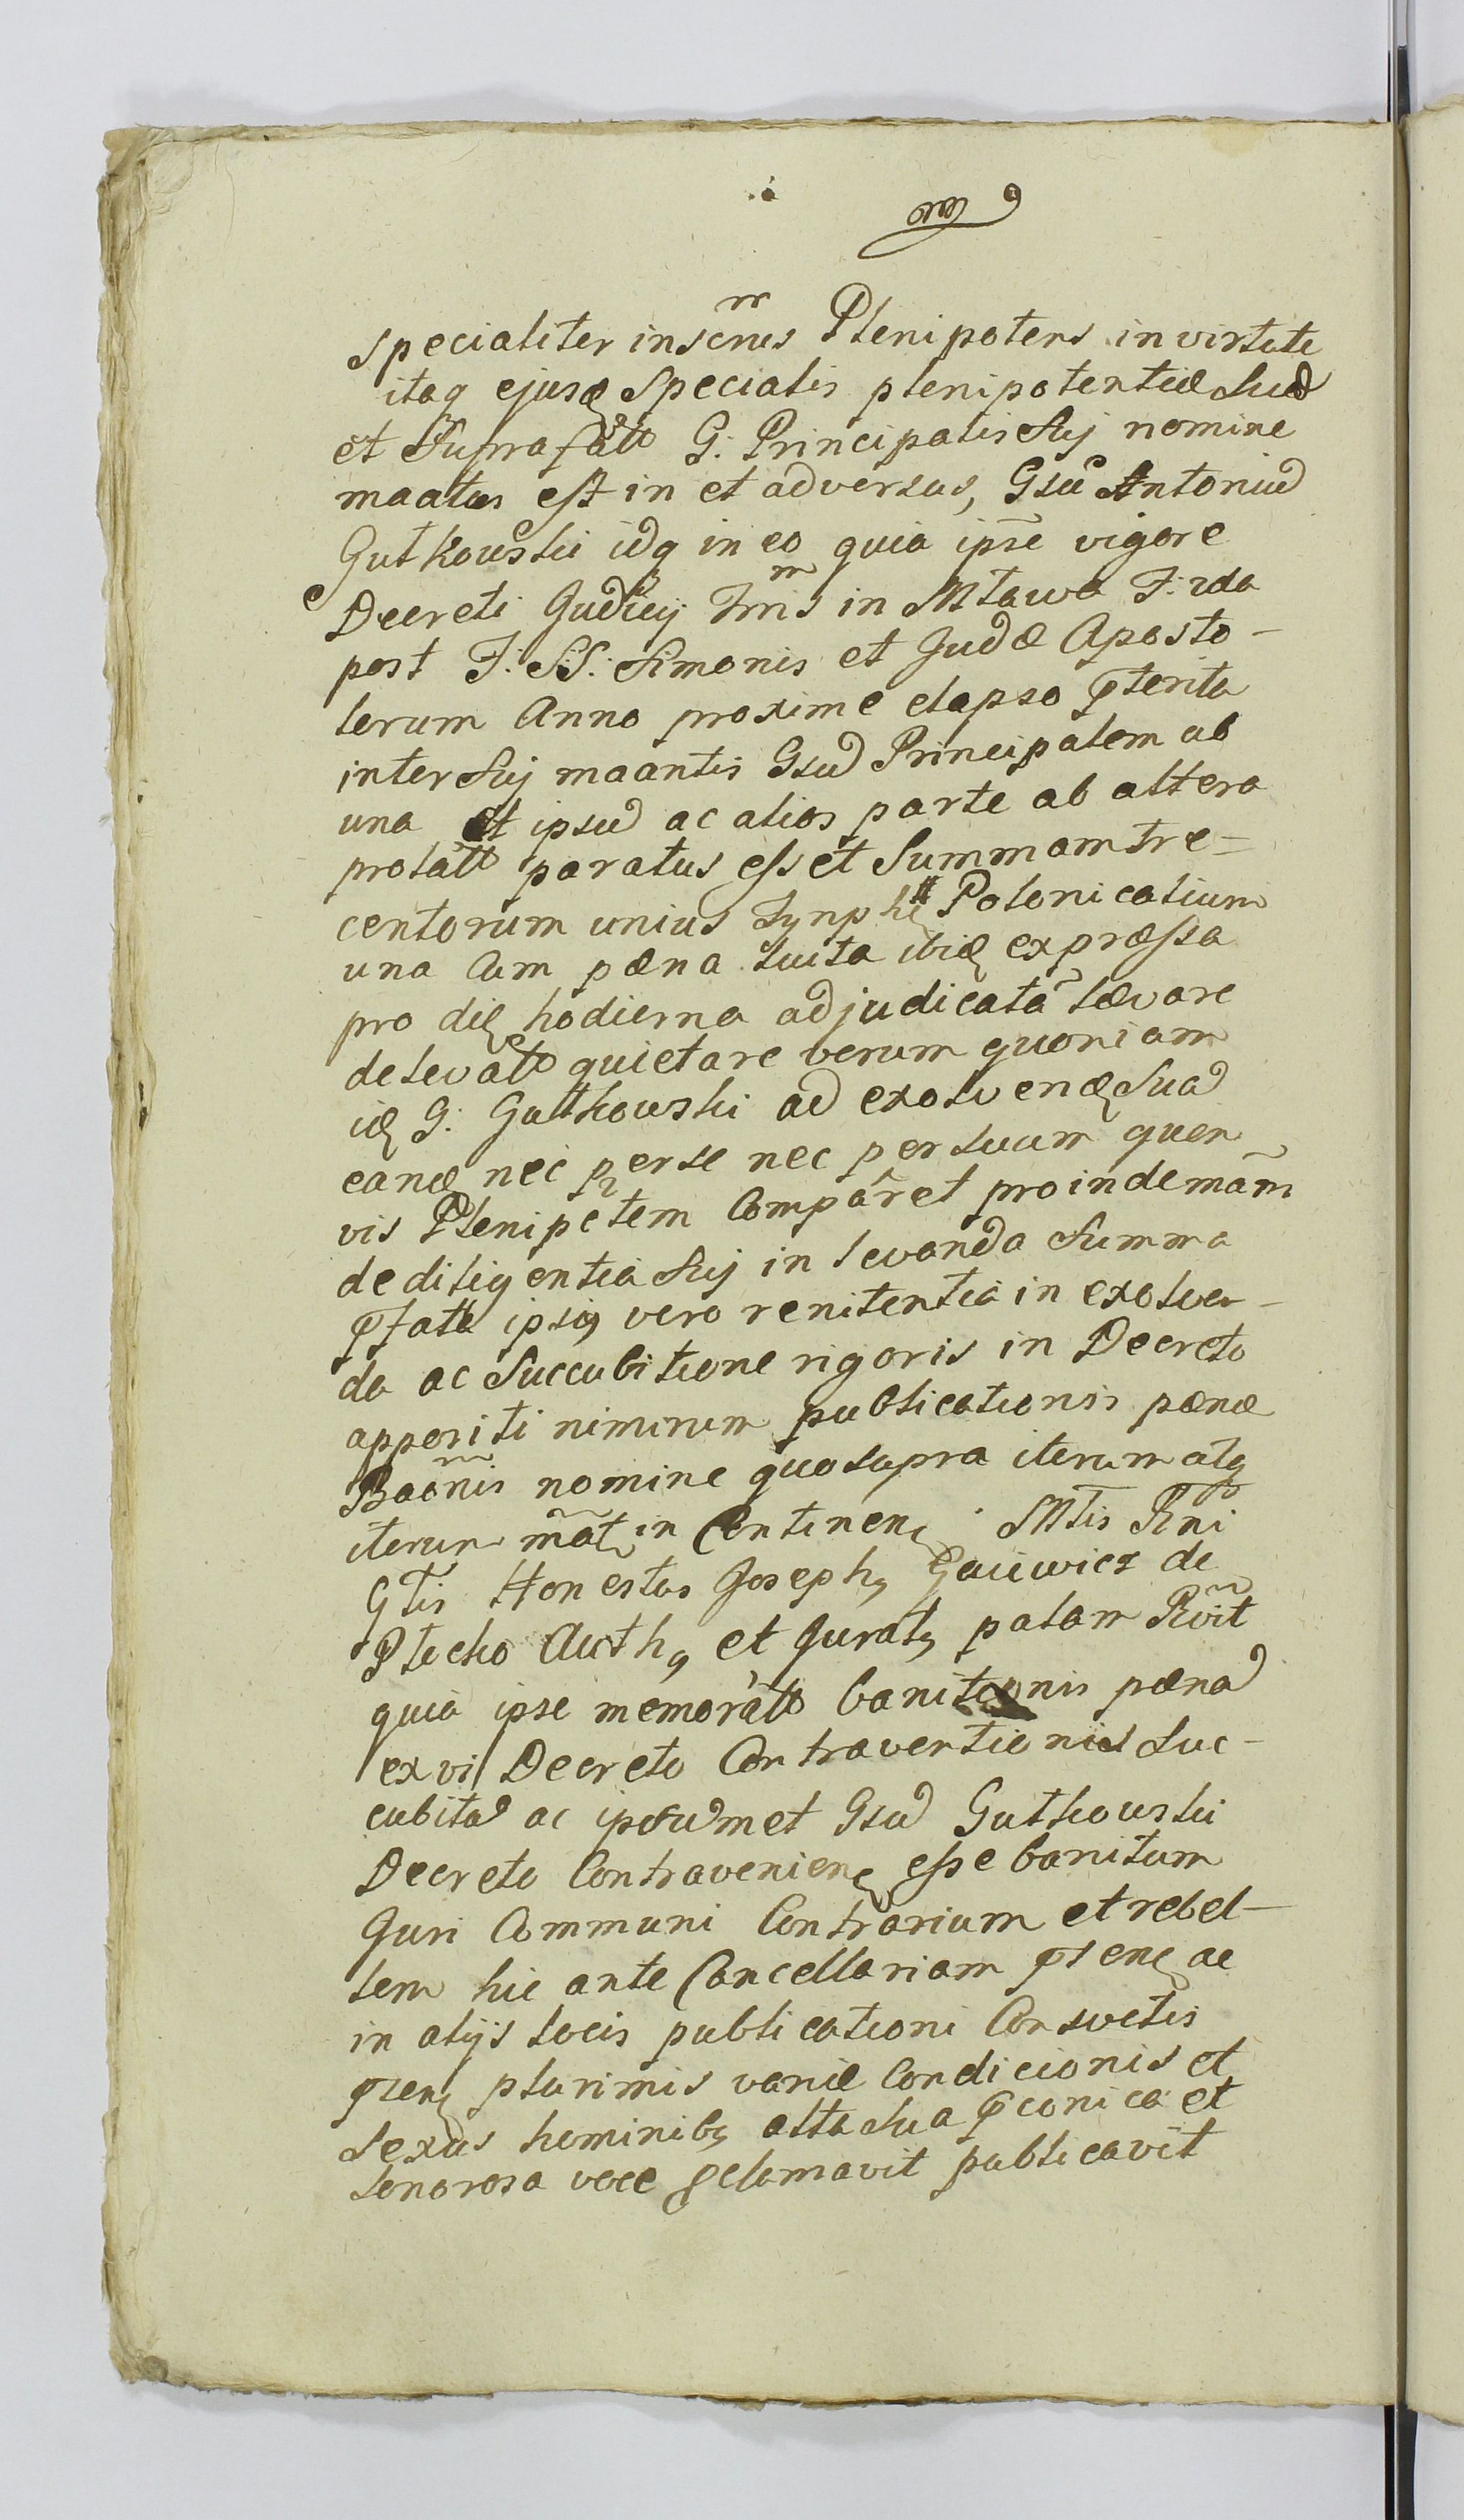 specialiter inscrńes Plenipotens in virtute
itaq ejusđ specialis plenipotentiæ suæ
et suprafatt G: Principalis sui nomine
maatus est in et adversus, Gsū Antoniū
Gutkowski idq in eo quia ipse vigore
Decreti Judicij Trrīs in Mława F: 2da
post F: SS: Simonis et Judæ Aposto-
lorum Anno proxime elapso ptenta
inter sui maantis Gsū Principalem ab
una et ipsū ac alios parte ab altera
prolatt paratus esset summam tre=
centorum unius Tynphi Polonicalium
una Cum pæna luita ibiđ expræssa
pro dię hodierna adjudicatā lævare
delevatt quietare verum quoniam
iđ G: Gutkowski ad exolvenđ suā
eanđ nec per se nec per suum quen
vis Plenipotem Compāret proinde mām
de diligentia sui in levanda summa
pfatt ipsiq vero renitentia in exolven-
da ac succubitione rigoris in Decreto
appositi nimirum publicationis pænæ
Baōnis nomine quo supra iterum atq
iterum māt in Continenę Mtis Rńi
Gtis Honestus Josephq Gaiewicz de
Plecko Authq et Juratq palam Rvīt
quia ipse memoratt banitionis pænā
ex vi Decreto Contraventionis suc-
cubitā ac ipsūmet Gsū Gutkowski
Decreto Contravenienę esse banitum
Juri Communi Contrarium et rebel-
lem hic ante Cancellariam psenę ac
in alijs locis publicationi Consvetis
psenę plurimis variæ Condicionis et
sexus hominibq alta sua pconica et
sonorosa voce pclamavit publicavit